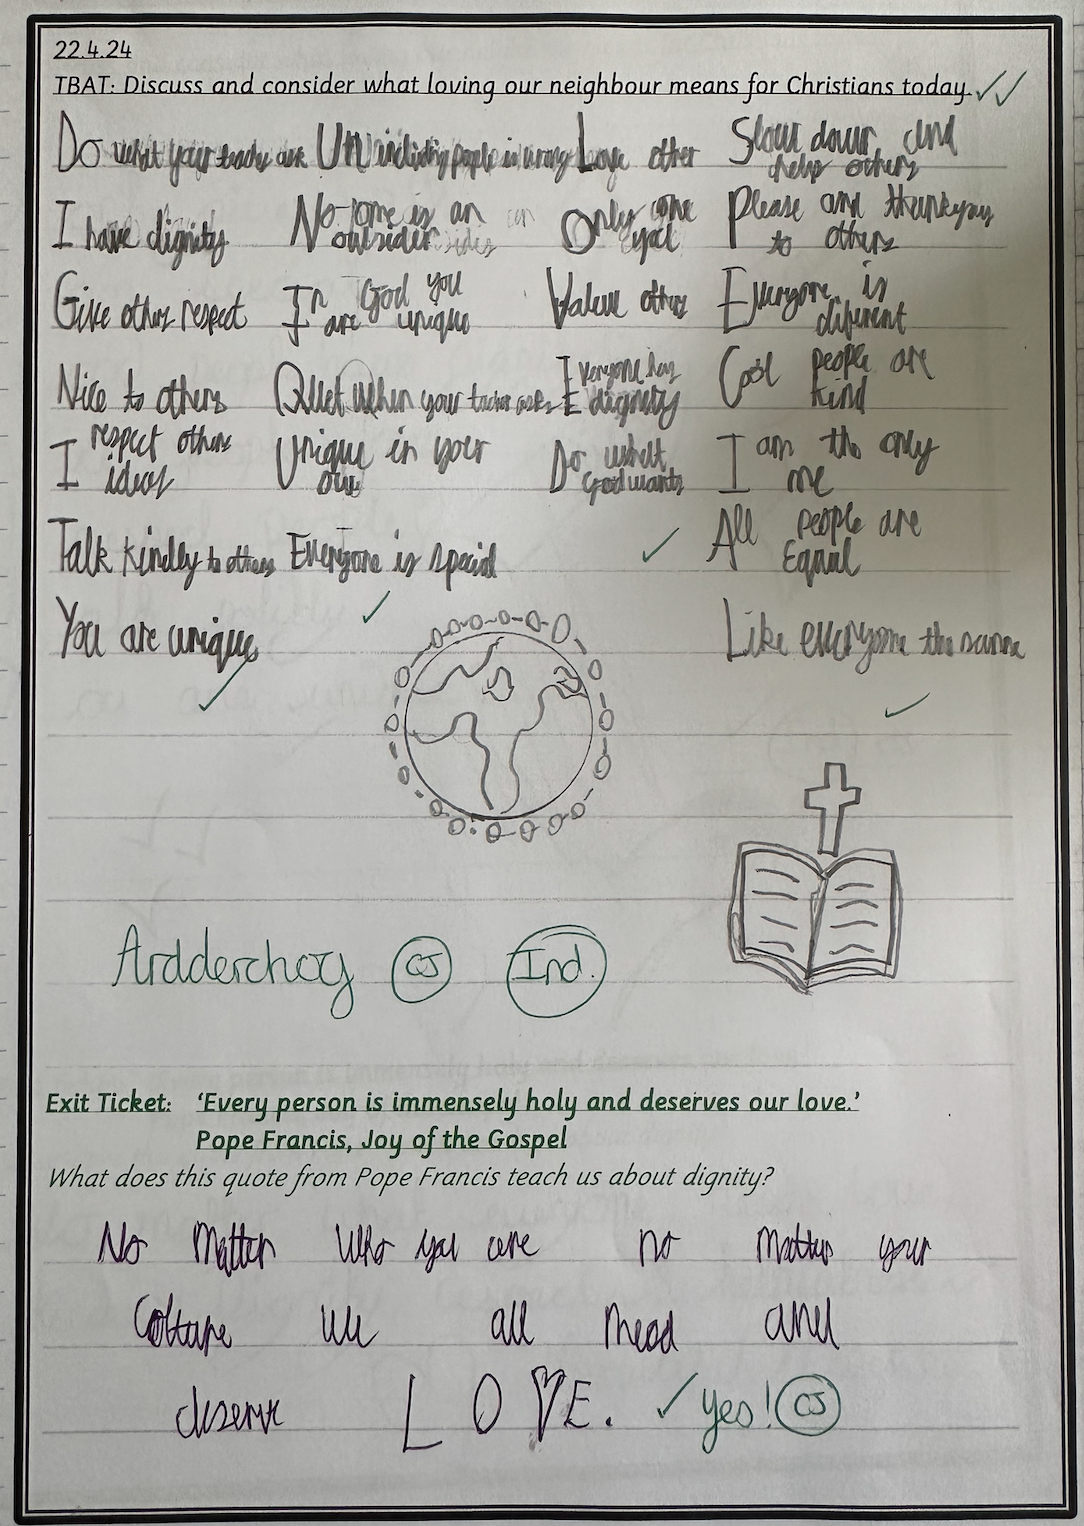 22.4.24
TBAT: Discuss and consider what loving our neighbour means for Christians today.
Do what your teacher ask
I have dignity
Give other respect
Nice to others
I respect others ideas
Talk kindly to others
You are unique
Un including people is wrong
No-one is an outsider
In God you are unique
Quiet when your teacher asks
Unique in your own
Everyone is special
Love other
Only one you
Value other
Everyone has dignity
Do what God wants
Slow down and help others
Please and thankyou to others
Everyone is diferent
Cool people are kind
I am the only me
All people are Equal
Like everyone the same
Ardderchog CJ Ind.
Exit Ticket: 'Every person is immensely holy and deserves our love.'
Pope Francis, Joy of the Gospel
What does this quote from Pope Francis teach us about dignity?
No Matter Who you are no matter your
we all and
deserve LOVE. Yes! CJ